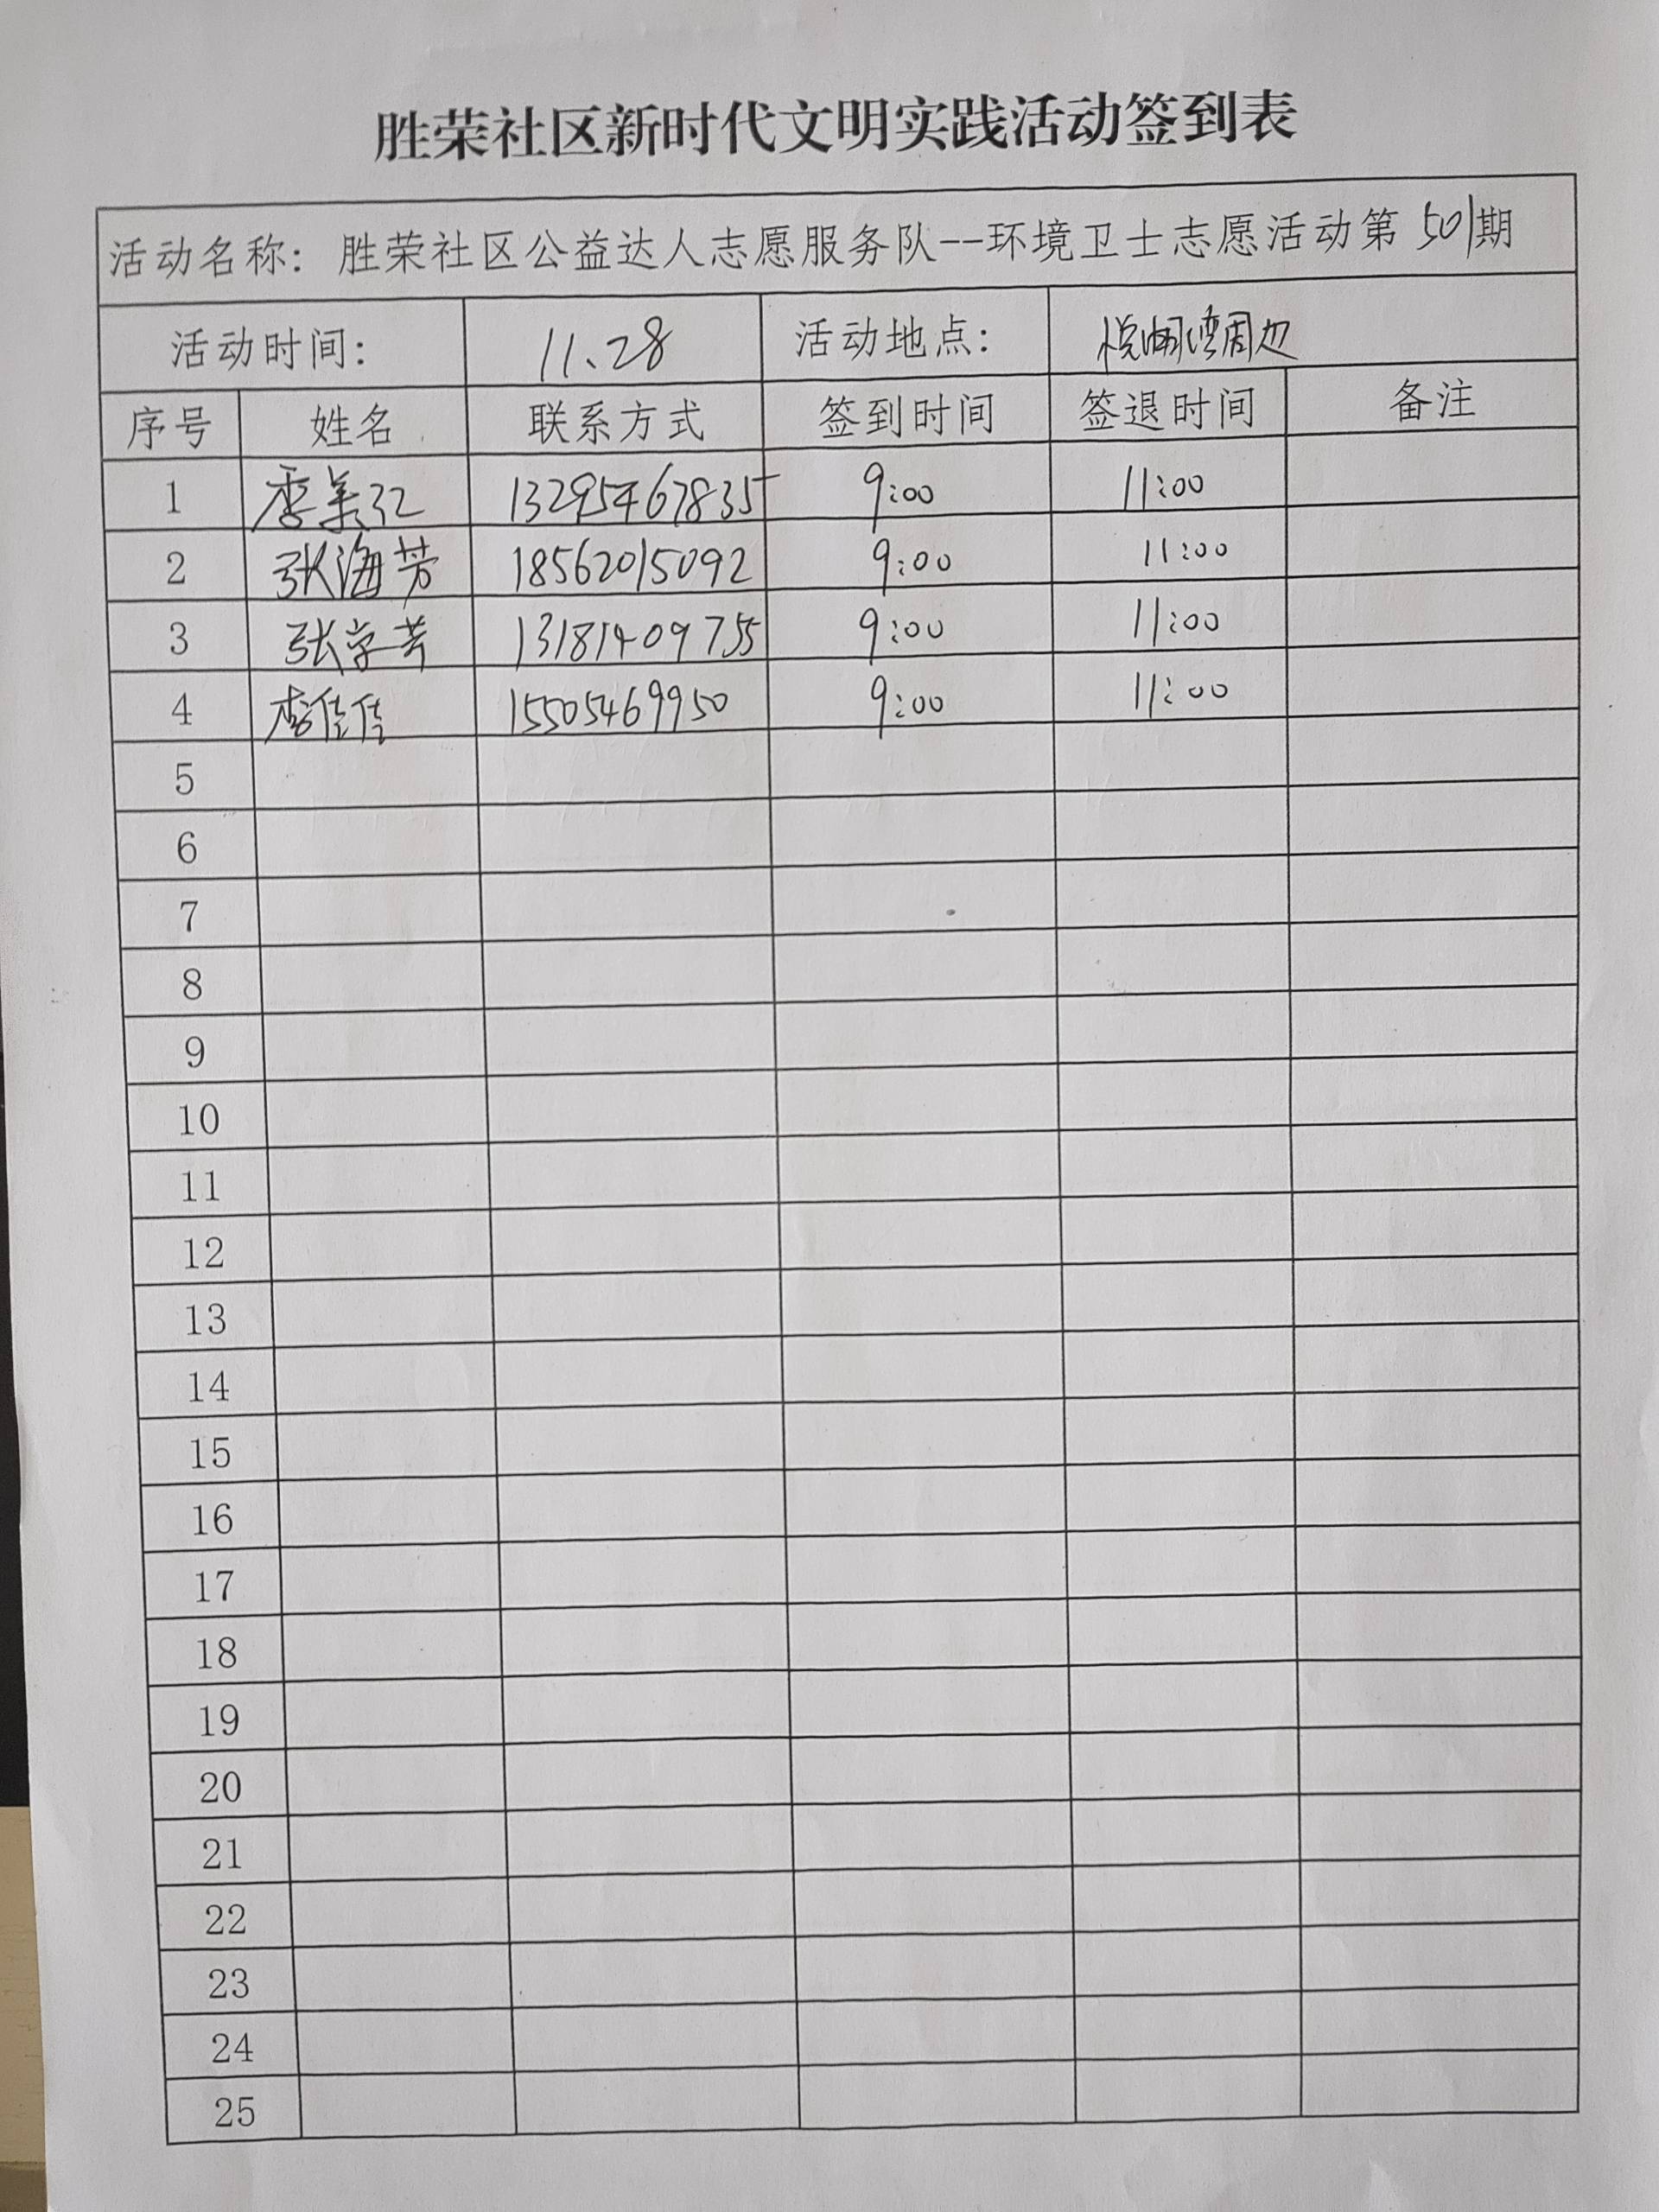 胜荣社区新时代文明实践活动签到表
活动名称: 胜荣社区公益达人志愿服务队--环境卫士志愿活动第 501期
活动时间: 11、28 活动地点: 悦湖湾周边
序号 姓名 联系方式 签到时间 签退时间 备注
1 李美红 13295467835 9:00 11:00
2 张海芳 18562015092 9:00 11:00
3 张学芳 13181409755 9:00 11:00
4 李佳佳 15505469950 9:00 11:00
5
6
7
8
9
10
11
12
13
14
15
16
17
18
19
20
21
22
23
24
25